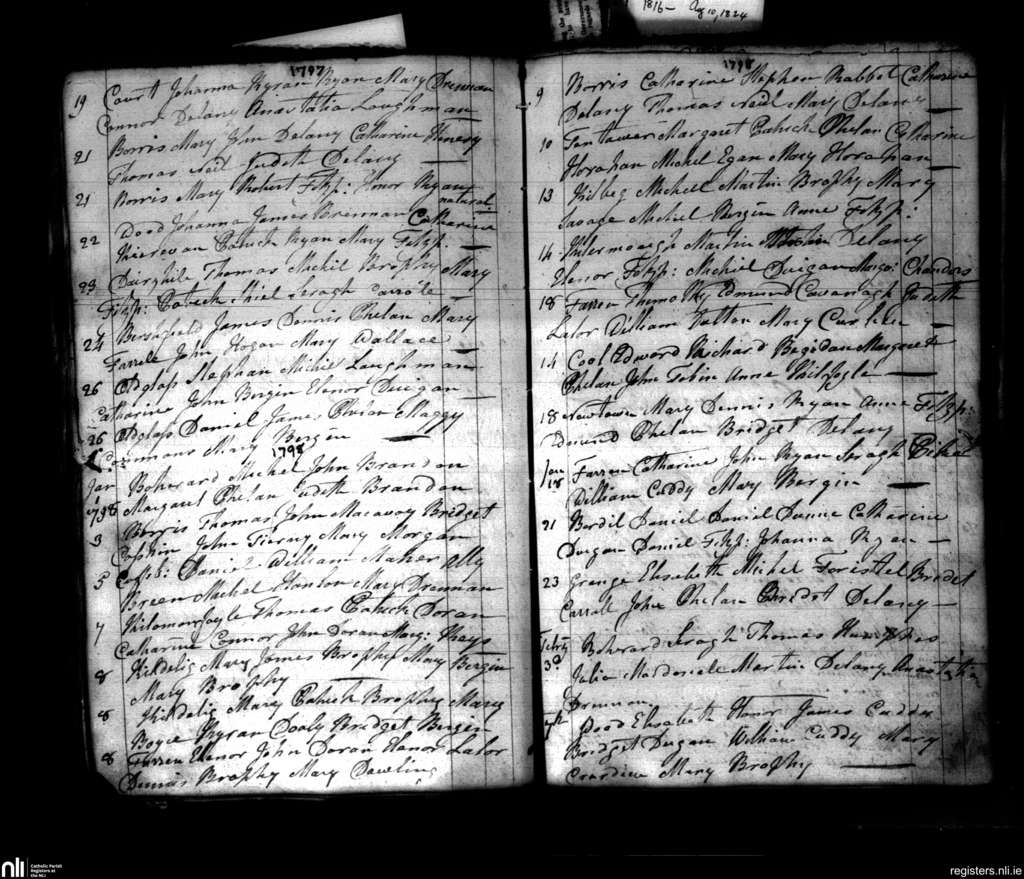 1816- Aug 10, 1824
1797
19 Court Johanna Kyran Ryan Mary Drennan
Connor Delany Anastatia Loughman
21 Borris Mary John Delany Catharine
Thomas Neil Judith Delany
21 Borris Mary Robert Fitzp: Honor Ryan
natural
22 Dood Johanna James Brennan Catharine
Kierevan Patrick Ryan Mary Fitzp:
23 Dairyhile Thomas Michil Brophy Mary
Fitzp: Patrick Shiel Seragh
24 James Dennis Phelan Mary
Farrell John Hogan Mary Wallace
26 Oldglass Stephan Michil Loughman
Catharine John Bergin Elenor Duigan
26 Oldglass Daniel James Phelan Maggy
Commons Mary Bergin
1798
Jan Boherard Michel John Brandon
1 1798 Margaret Phelan Judith Brandon
3 Borris Thomas John Macavoy Bridget
John Tierny Mary Morgan
5 Daniel William Maher Ally
Breen Michel Mary Drennan
7 Thomas Patrick Doran
Catharine Connor John Doran Marg: Hays
8 Kildelig Mary James Brophy Mary Bergin
Mary Brophy
8 Kildelig Mary Patrick Brophy Mary
Boyce Kyran Dooly Bridget Bergin
8 Farren Elenor John Doran Honor Lalor
Dennis Brophy Mary Dowling
1798
9 Borris Catharine Stephen Rabbet Catharine
Delany Thomas Neil Mary Delany
10 Margaret Patrick Phelan Catharine
Horahan Michel Egan Mary Horahan
13 Kilbeg Michell Martin Brophy Mary
Savage Michiel Bergin Anne Fitzp:
14 Martin Delany
Elenor Fitzp: Michiel Duigan Marga: Chanders
18 Farren Thimothy Edmund Cavanagh Judith
Lalor William Dalton Mary
14 Cool Edward Richard Margarete
Phelan John Tobin Anne
18 Newtown Mary Dennis Ryan Anne Fitzp:
Edmund Phelan Bridget Delany
Jan 18 Farren Catharine John Ryan Seragh
William Cuddy Mary Bergin
21 Bardil Daniel Daniel Dunne Catharine
Duigan Daniel Fitzp: Johanna Ryan
23 Grange Elisabeth Michel Foristel Bridet
Carroll John Phelan Bridet Delany
Febry 3d Boherard Seragh Thomas
Julia Macdonele Martin Delany Anastatia
Drennan
Dood Elisabeth Honor James Cuddy
Bridget Dugan William Cuddy Mary
Mary Brophy
nli
Catholic Parish
Registers at
the NLI
registers.nli.ie